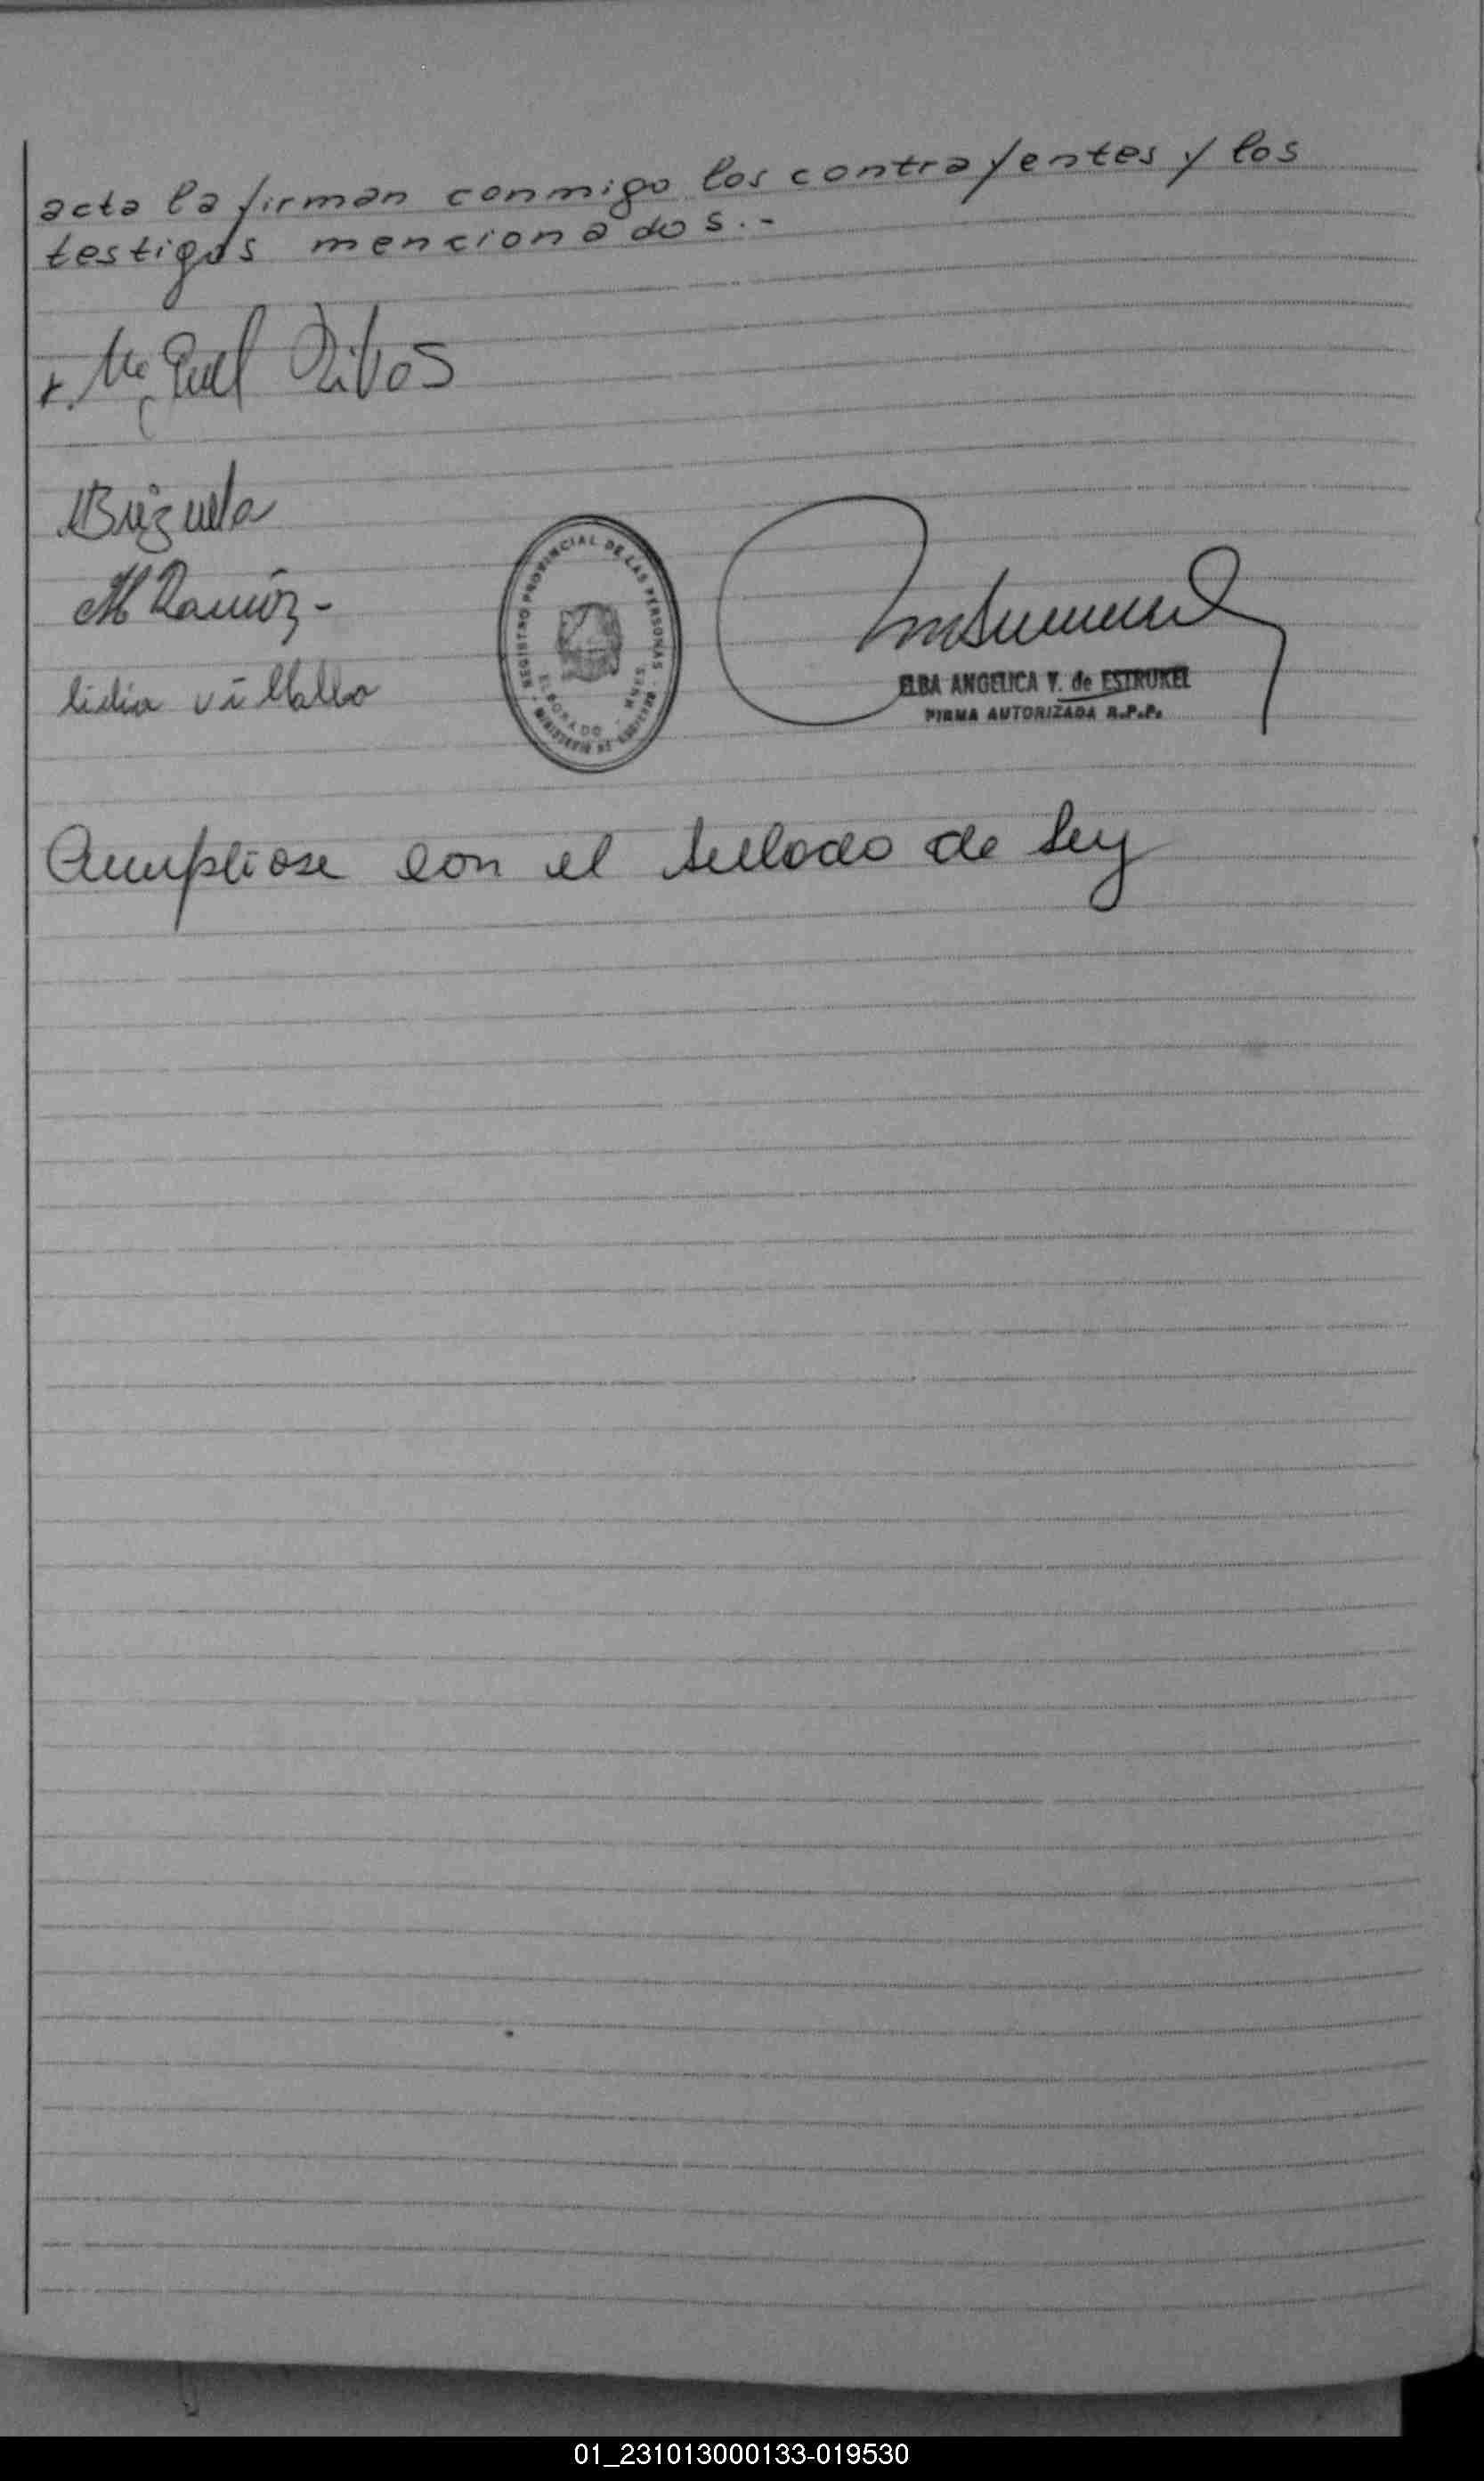 acta la firman conmigo los contrayentes y los
testigos mencionados.-
Miguel
Brizuela
lidia villalba
REGISTRO PROVINCIAL DE LAS PERSONAS - MINISTERIO DE
ELDORADO - MNES.
ELBA ANGELICA V. de ESTRUKEL
FIRMA AUTORIZADA R.P.P.
Cumpliose con el sellado de ley
01_231013000133-019530